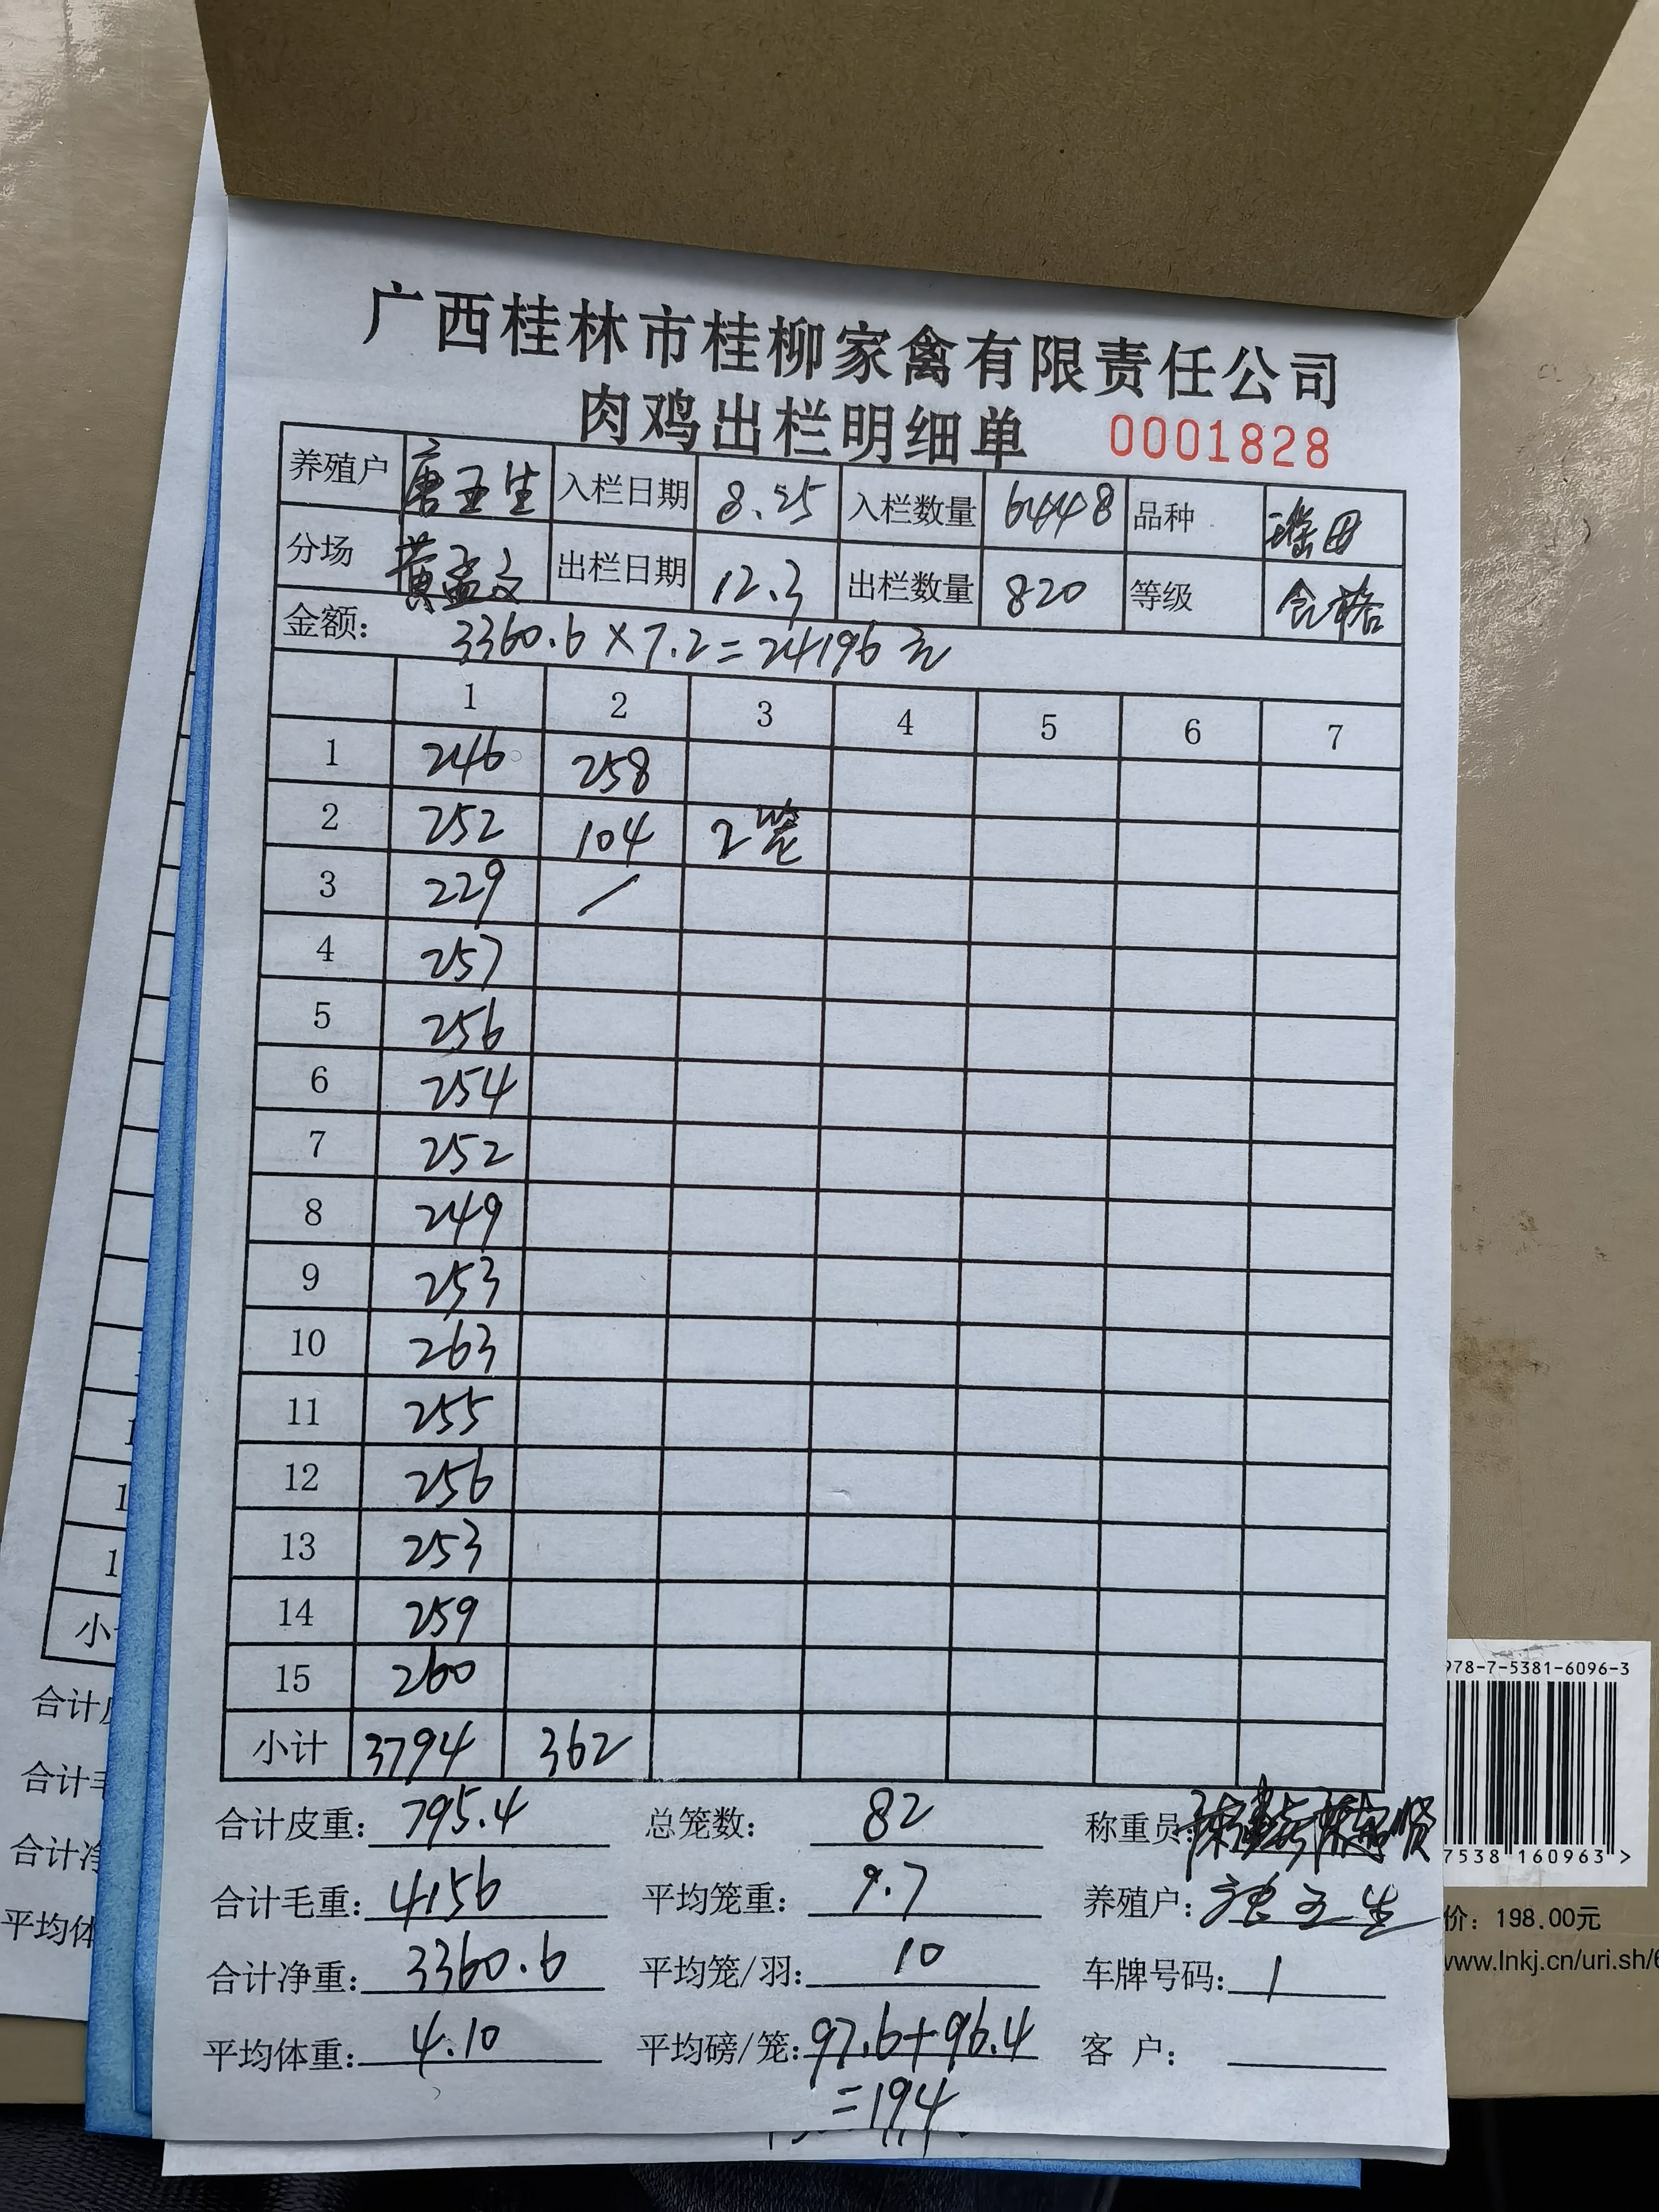 广西桂林市桂柳家禽有限责任公司
肉鸡出栏明细单 0001828
养殖户 唐玉生 入栏日期 8.25 入栏数量 6448 品种 瑶田
分场 黄孟文 出栏日期 12.3 出栏数量 820 等级 合格
金额: 3360.6×7.2=24196元
1 2 3 4 5 6 7
1 246 258
2 252 104 2笼
3 229 /
4 257
5 256
6 254
7 252
8 249
9 253
10 263
11 255
12 256
13 253
14 259
15 260
小计 3794 362
合计皮重: 795.4 总笼数: 82 称重员:
合计毛重: 4156 平均笼重: 9.7 养殖户: 唐玉生
合计净重: 3360.6 平均笼/羽: 10 车牌号码: 1
平均体重: 4.10 平均磅/笼: 97.6+96.4 客户:
=194
小
合计
合计
合计净
平均体
978-7-5381-6096-3
7538 160963 >
价: 198.00元
www.lnkj.cn/uri.sh/6